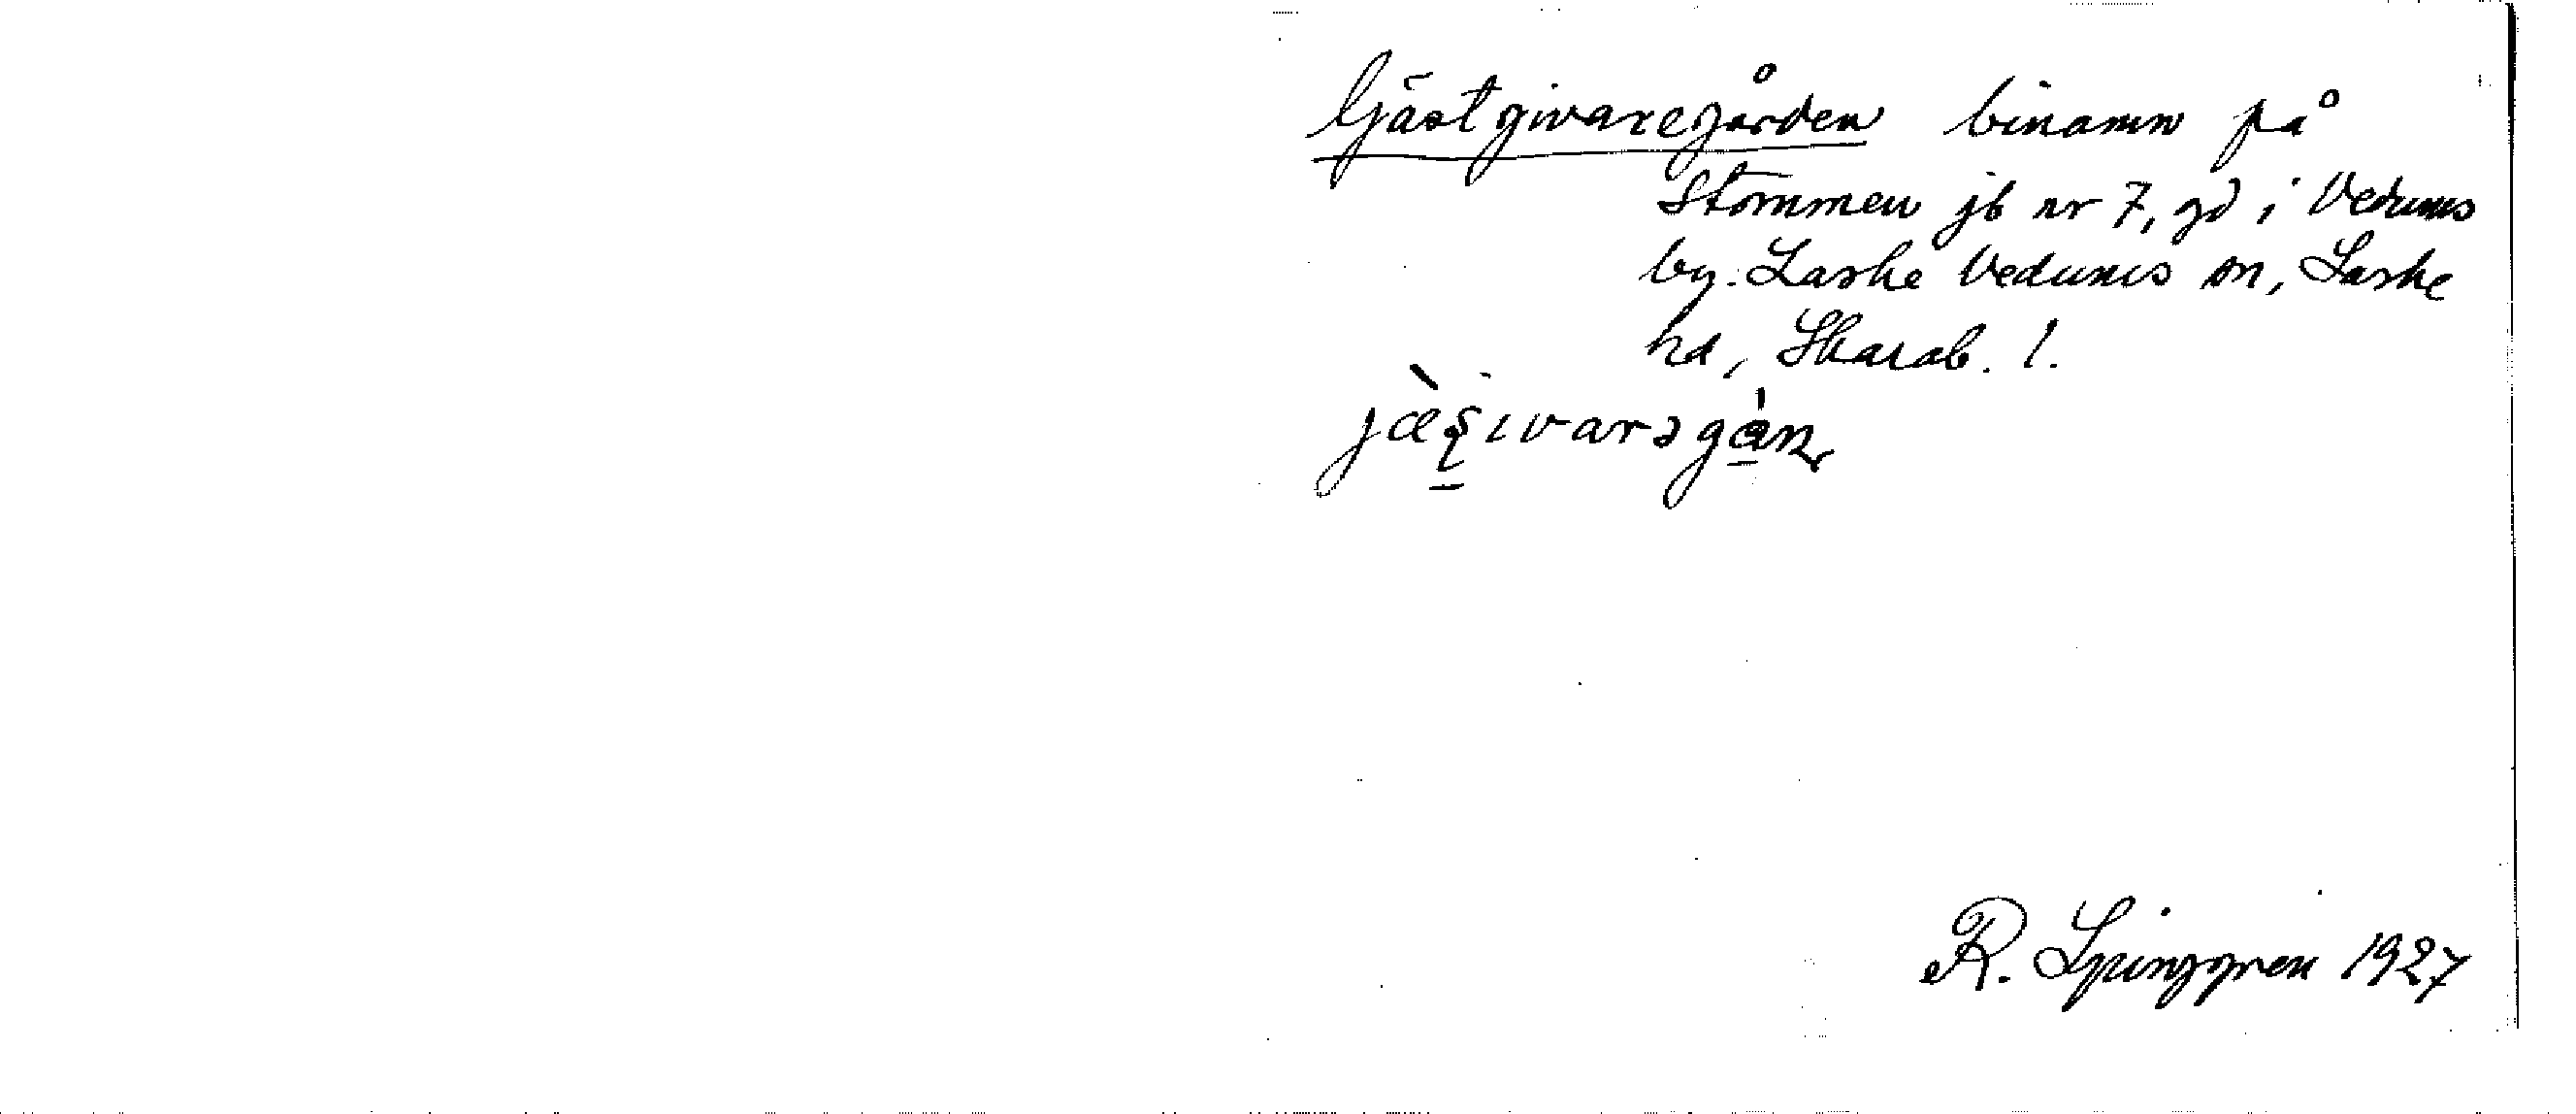 Gästgivaregården binamn på
Stommen jb nr 7, gd i Vedums
by. Laske Vedums sn, Laske
hd, Skarab. l.
R. Ljunggren 1927